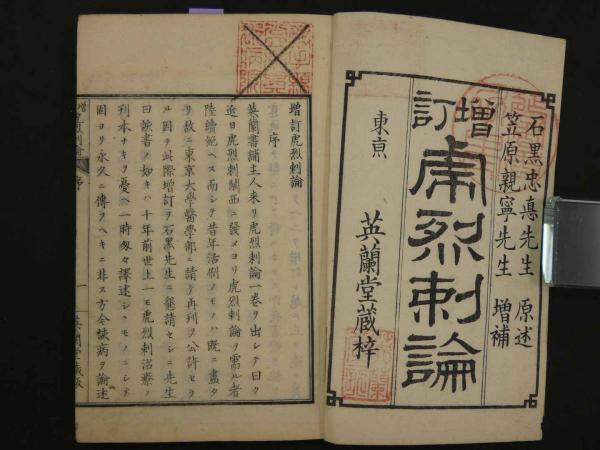 石黒忠悳先生 原述
笠原親寧先生 増補
増訂
虎烈刺論
東亰 英蘭堂蔵梓
増訂虎烈刺論
序
英蘭書舗主人来リ虎烈刺論一巻ヲ出シテ曰ク
近日虎烈刺関西ニ發メヨリ虎烈刺論ヲ需ル者
陸續絶ヘス而シテ昔年活刷ノモノハ既ニ盡タ
リ故ニ東京大學醫學部ニ請テ再刊ヲ公許セラ
ル因テ此際増訂ヲ石黒先生ニ懇請セシニ先生
曰該書ノ如キハ十年前世上一モ虎烈刺治療ノ
刊本ナキヲ憂ヘ一時匆々譯述シタモノニシテ
固ヨリ永久ニ傳フヘキニ非ス方今該病ヲ論述